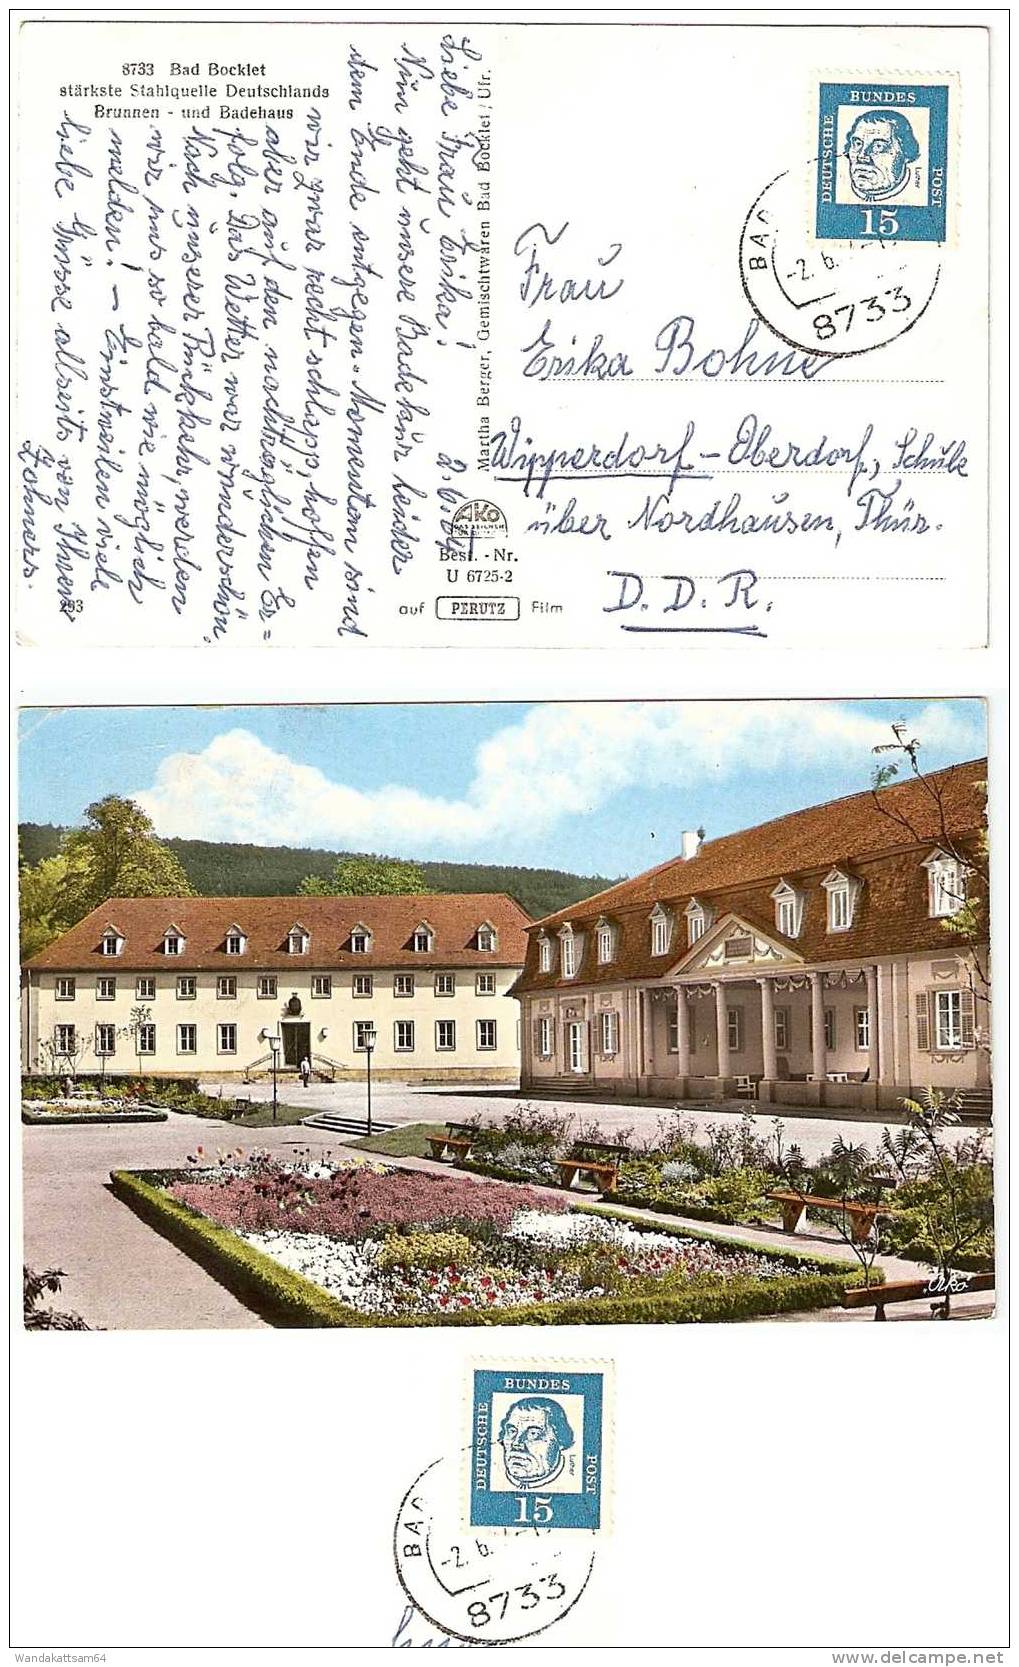 8733 Bad Bocklet
stärkste Stahlquelle Deutschlands
Brunnen - und Badehaus
2.6.64
Liebe Frau Erika!
Nun geht unsere Badekur leider
dem Ende entgegen. Momentan sind
wir zwar recht schlapp, hoffen
aber auf den nachträglichen Er=
folg. Das Wetter war wunderschön.
Nach unserer Rückkehr, werden
wir uns so bald wie möglich
melden! - Einstweilen viele
liebe Grüsse allseits von Ihren
Martha Berger, Gemischtwaren Bad Bocklet / Ufr.
AKO
Best. - Nr.
U 6725-2
293
auf PERUTZ Film
DEUTSCHE
BUNDES
POST
Luther
15
BAD
-2.6.
8733
Frau
Erika Bohne
Wipperdorf - Oberdorf, Schule
über Nordhausen, Thür.
D. D. R.
Ako
DEUTSCHE
BUNDES
POST
Luther
15
BAD
-2.6.
8733
Wandakattsam64